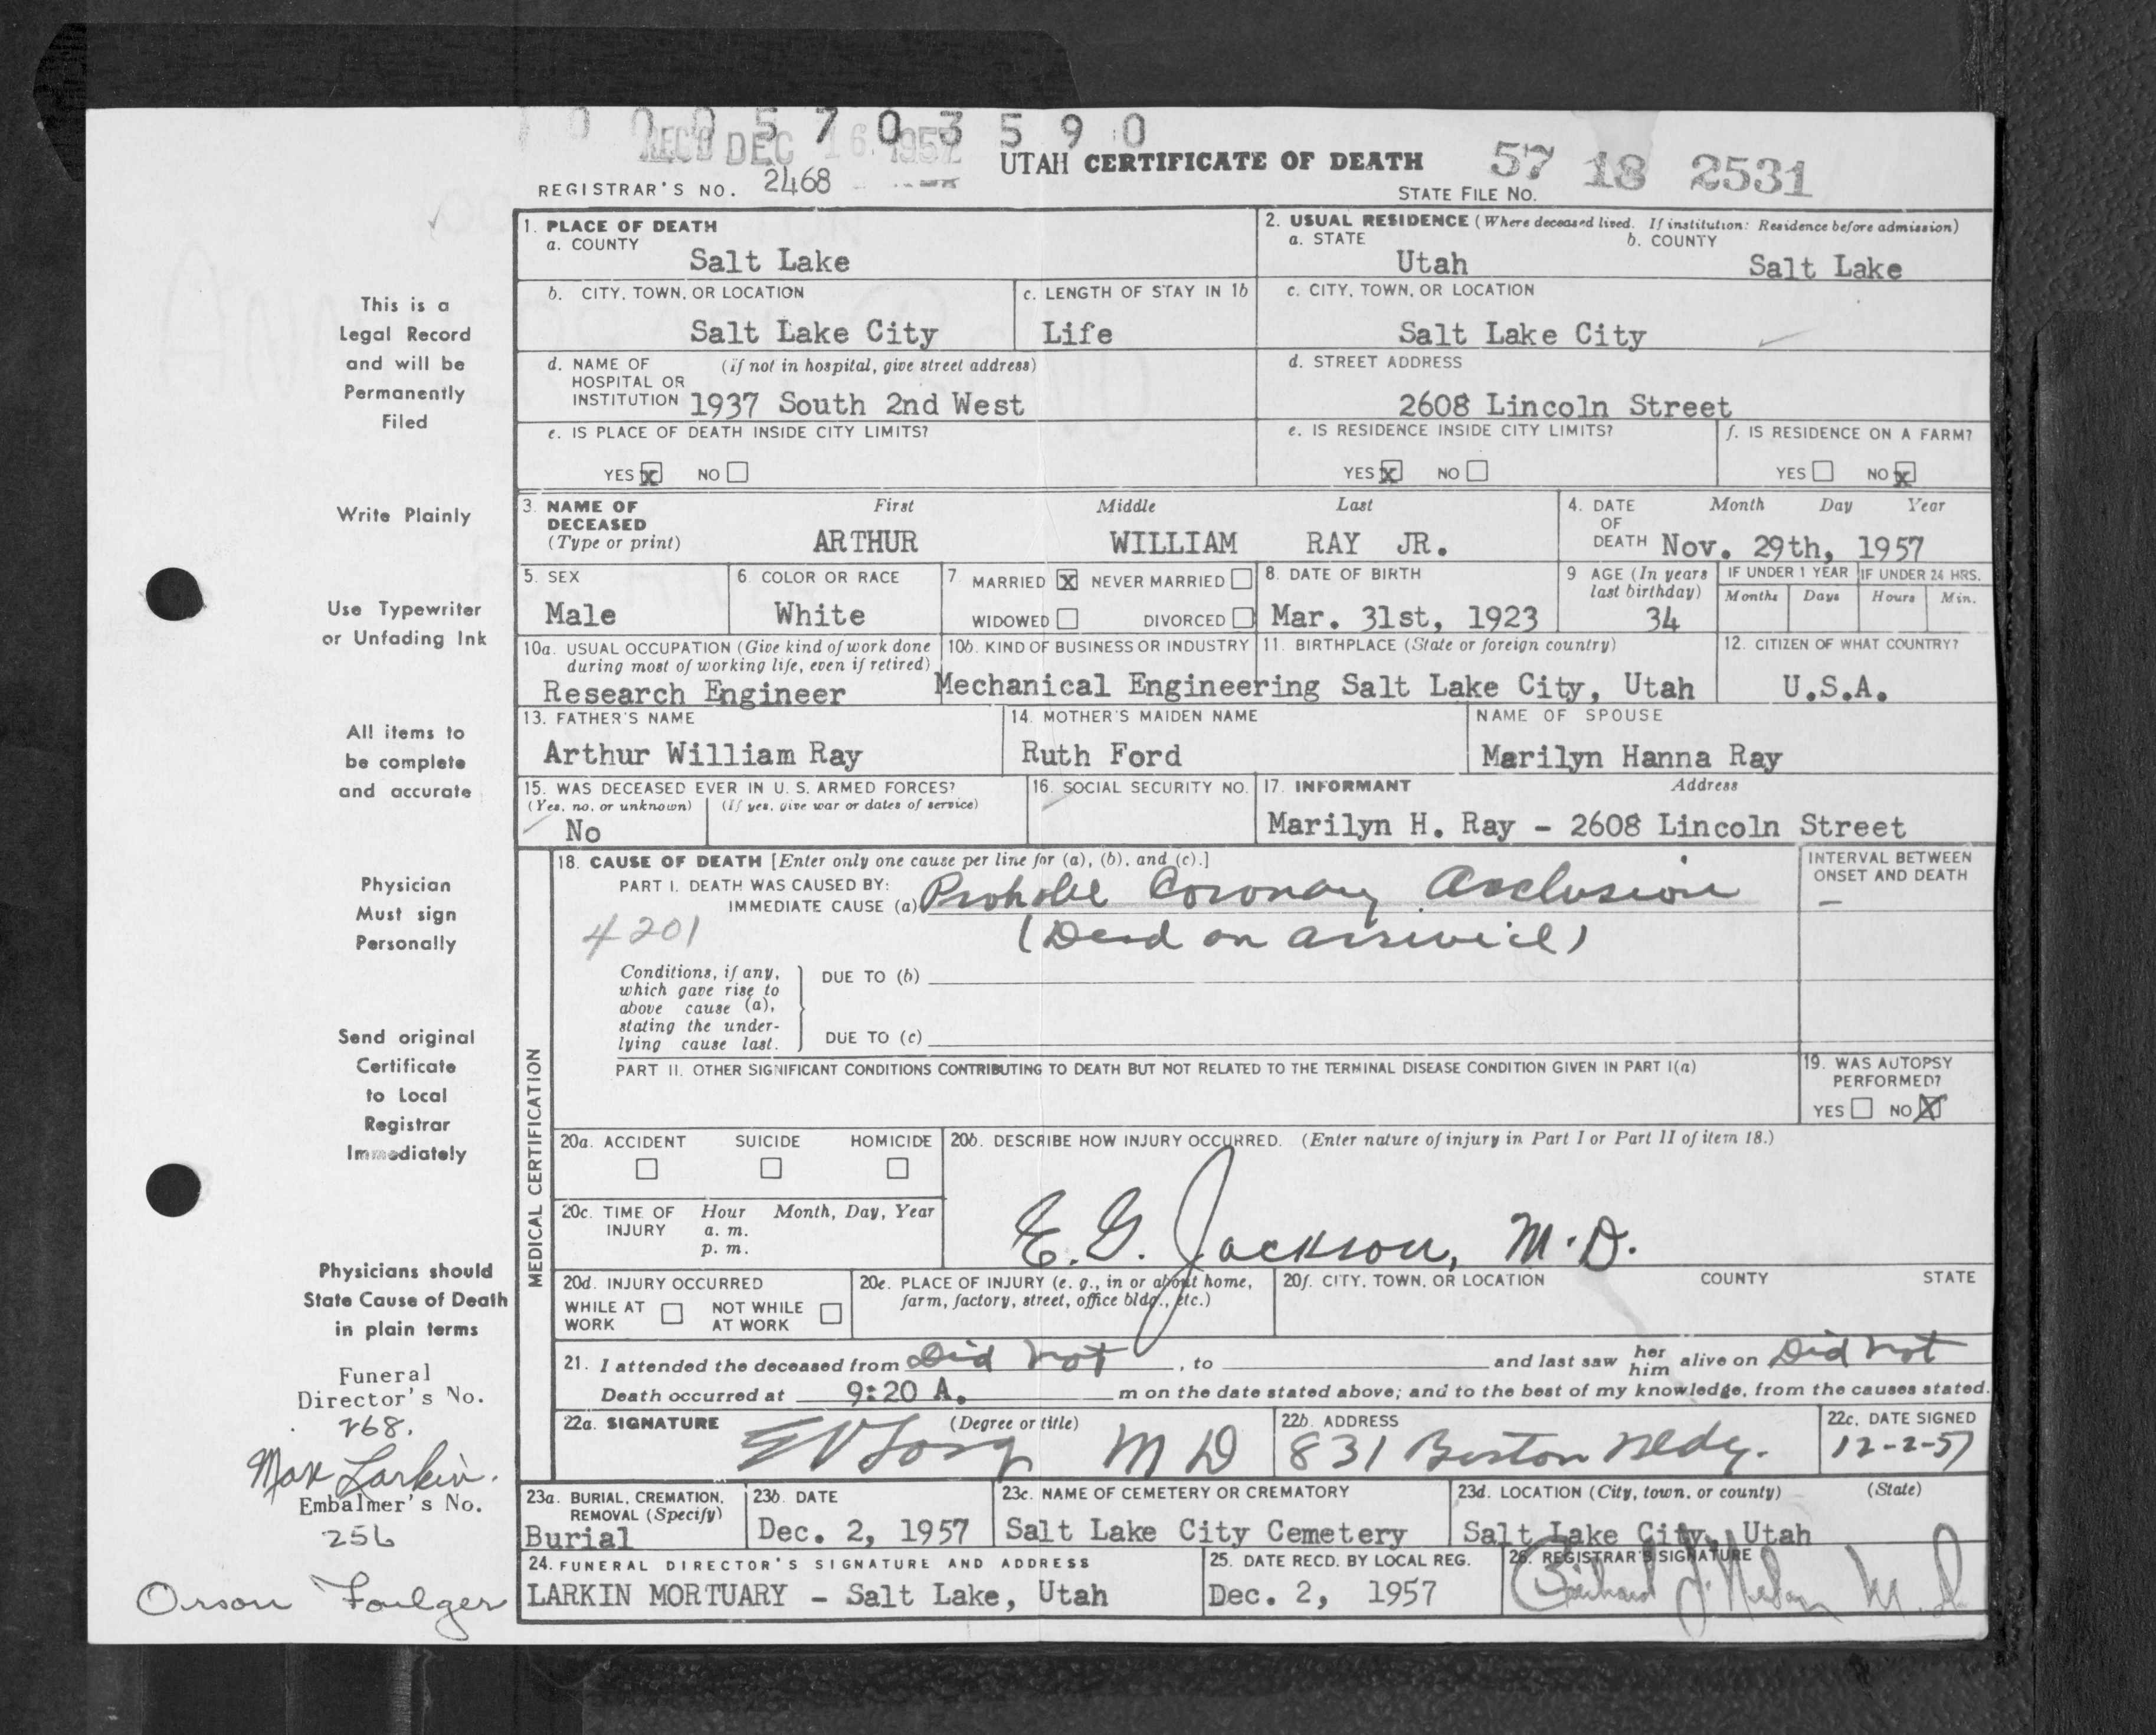 1 0 0 0 5 7 0 3 5 9 0
REC'D DEC 16 1957
UTAH CERTIFICATE OF DEATH
57 18 2531
REGISTRAR'S NO. 2468
STATE FILE NO.
1. PLACE OF DEATH
a. COUNTY
Salt Lake
2. USUAL RESIDENCE (Where deceased lived. If institution: Residence before admission)
a. STATE b. COUNTY
Utah Salt Lake
b. CITY, TOWN, OR LOCATION
Salt Lake City
c. LENGTH OF STAY IN 1b
Life
c. CITY, TOWN, OR LOCATION
Salt Lake City
d. NAME OF (If not in hospital, give street address)
HOSPITAL OR
INSTITUTION 1937 South 2nd West
d. STREET ADDRESS
2608 Lincoln Street
e. IS PLACE OF DEATH INSIDE CITY LIMITS?
YES X NO
e. IS RESIDENCE INSIDE CITY LIMITS?
YES X NO
f. IS RESIDENCE ON A FARM?
YES NO X
3. NAME OF DECEASED (Type or print)
First Middle Last
ARTHUR WILLIAM RAY JR.
4. DATE OF DEATH
Month Day Year
Nov. 29th, 1957
5. SEX
Male
6. COLOR OR RACE
White
7. MARRIED X NEVER MARRIED
WIDOWED DIVORCED
8. DATE OF BIRTH
Mar. 31st, 1923
9 AGE (In years last birthday)
34
IF UNDER 1 YEAR
Months Days
IF UNDER 24 HRS.
Hours Min.
10a. USUAL OCCUPATION (Give kind of work done
during most of working life, even if retired)
Research Engineer
10b. KIND OF BUSINESS OR INDUSTRY
Mechanical Engineering
11. BIRTHPLACE (State or foreign country)
Salt Lake City, Utah
12. CITIZEN OF WHAT COUNTRY?
U.S.A.
13. FATHER'S NAME
Arthur William Ray
14. MOTHER'S MAIDEN NAME
Ruth Ford
NAME OF SPOUSE
Marilyn Hanna Ray
15. WAS DECEASED EVER IN U. S. ARMED FORCES?
(Yes, no, or unknown) (If yes, give war or dates of service)
No
16. SOCIAL SECURITY NO.
17. INFORMANT Address
Marilyn H. Ray - 2608 Lincoln Street
MEDICAL CERTIFICATION
18. CAUSE OF DEATH [Enter only one cause per line for (a), (b), and (c).]
PART I. DEATH WAS CAUSED BY:
IMMEDIATE CAUSE (a) Probable Coronary Occlusion
4201 (Dead on arrival)
INTERVAL BETWEEN
ONSET AND DEATH
—
Conditions, if any,
which gave rise to
above cause (a),
stating the under-
lying cause last.
DUE TO (b)
DUE TO (c)
PART II. OTHER SIGNIFICANT CONDITIONS CONTRIBUTING TO DEATH BUT NOT RELATED TO THE TERMINAL DISEASE CONDITION GIVEN IN PART I(a)
19. WAS AUTOPSY
PERFORMED?
YES NO X
20a. ACCIDENT SUICIDE HOMICIDE
20b. DESCRIBE HOW INJURY OCCURRED. (Enter nature of injury in Part I or Part II of item 18.)
20c. TIME OF INJURY
Hour Month, Day, Year
a. m.
p. m.
E. G. Jackson, M.D.
20d. INJURY OCCURRED
WHILE AT WORK NOT WHILE AT WORK
20e. PLACE OF INJURY (e. g., in or about home,
farm, factory, street, office bldg., etc.)
20f. CITY, TOWN, OR LOCATION COUNTY STATE
21. I attended the deceased from Did not, to and last saw her him alive on Did not
Death occurred at 9:20 A. m on the date stated above; and to the best of my knowledge, from the causes stated.
22a. SIGNATURE (Degree or title)
M D
22b. ADDRESS
831 Boston Bldg.
22c. DATE SIGNED
12-2-57
23a. BURIAL, CREMATION,
REMOVAL (Specify)
Burial
23b. DATE
Dec. 2, 1957
23c. NAME OF CEMETERY OR CREMATORY
Salt Lake City Cemetery
23d. LOCATION (City, town, or county) (State)
Salt Lake City, Utah
24. FUNERAL DIRECTOR'S SIGNATURE AND ADDRESS
LARKIN MORTUARY - Salt Lake, Utah
25. DATE RECD. BY LOCAL REG.
Dec. 2, 1957
26. REGISTRAR'S SIGNATURE
Richard J. Nelson M.D.
This is a
Legal Record
and will be
Permanently
Filed
Write Plainly
Use Typewriter
or Unfading Ink
All items to
be complete
and accurate
Physician
Must sign
Personally
Send original
Certificate
to Local
Registrar
Immediately
Physicians should
State Cause of Death
in plain terms
Funeral
Director's No.
268.
Max Larkin.
Embalmer's No.
256
Orson Foulger